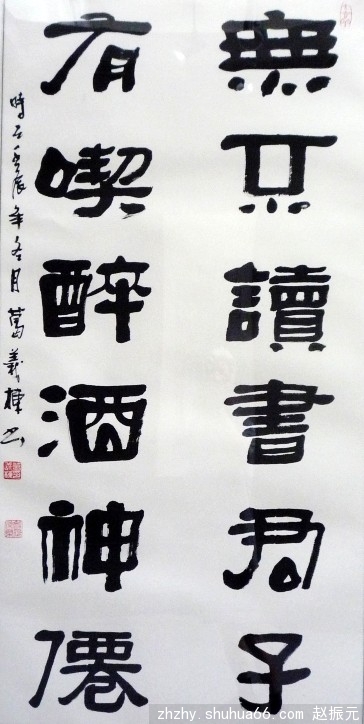 無不讀書君子
有喫醉酒神僊
時在壬辰年冬月葛義棟书
zhzhy.shuhua66.com 赵振元